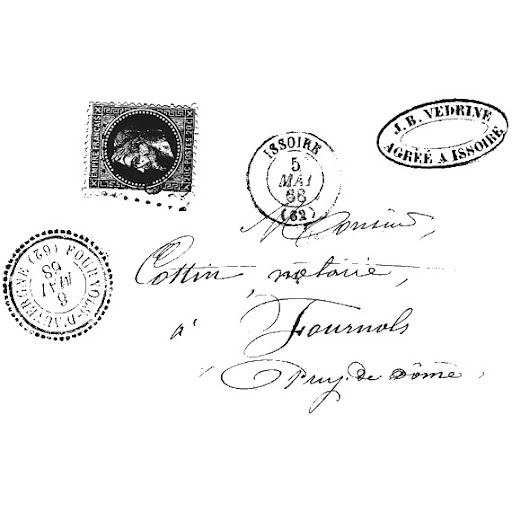 EMPIRE FRANÇAIS
20 C POSTES 20 C
ISSOIRE
5
MAI
68
(62)
J. B. VEDRINE
AGRÉÉ A ISSOIRE
FOURNOLS-D'AUVERGNE (62)
6
MAI
68
Monsieur,
Cottin, notaire,
a'
Fournols
Puy-de Dôme.